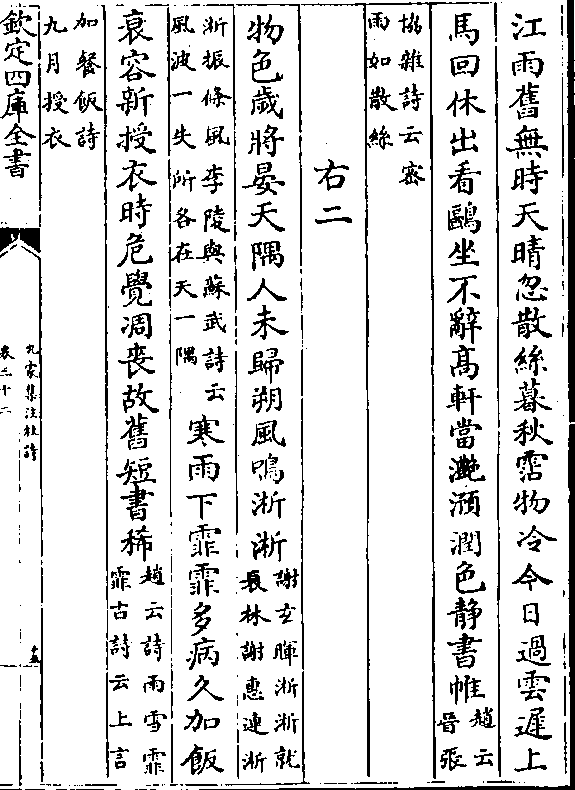 江雨舊無時天晴忽散絲暮秋霑物冷今日過雲遲上
馬回休出看鷗坐不辭髙軒當灔澦潤色静書帷趙云
晉張
協雜詩云宻
雨如散絲
右二
物色歲將晏天隅人未歸朔風鳴淅淅謝𤣥暉淅淅就
衰林謝惠連淅
淅振條風李陵與蘇武詩云
風波一失所各在天一隅寒雨下霏霏多病久加飯
衰容新授衣時危覺凋喪故舊短書稀趙云詩雨雪霏
霏古詩云上言
加餐飯詩
九月授衣
欽定四庫全書
九家集注杜詩
卷三十二
十五